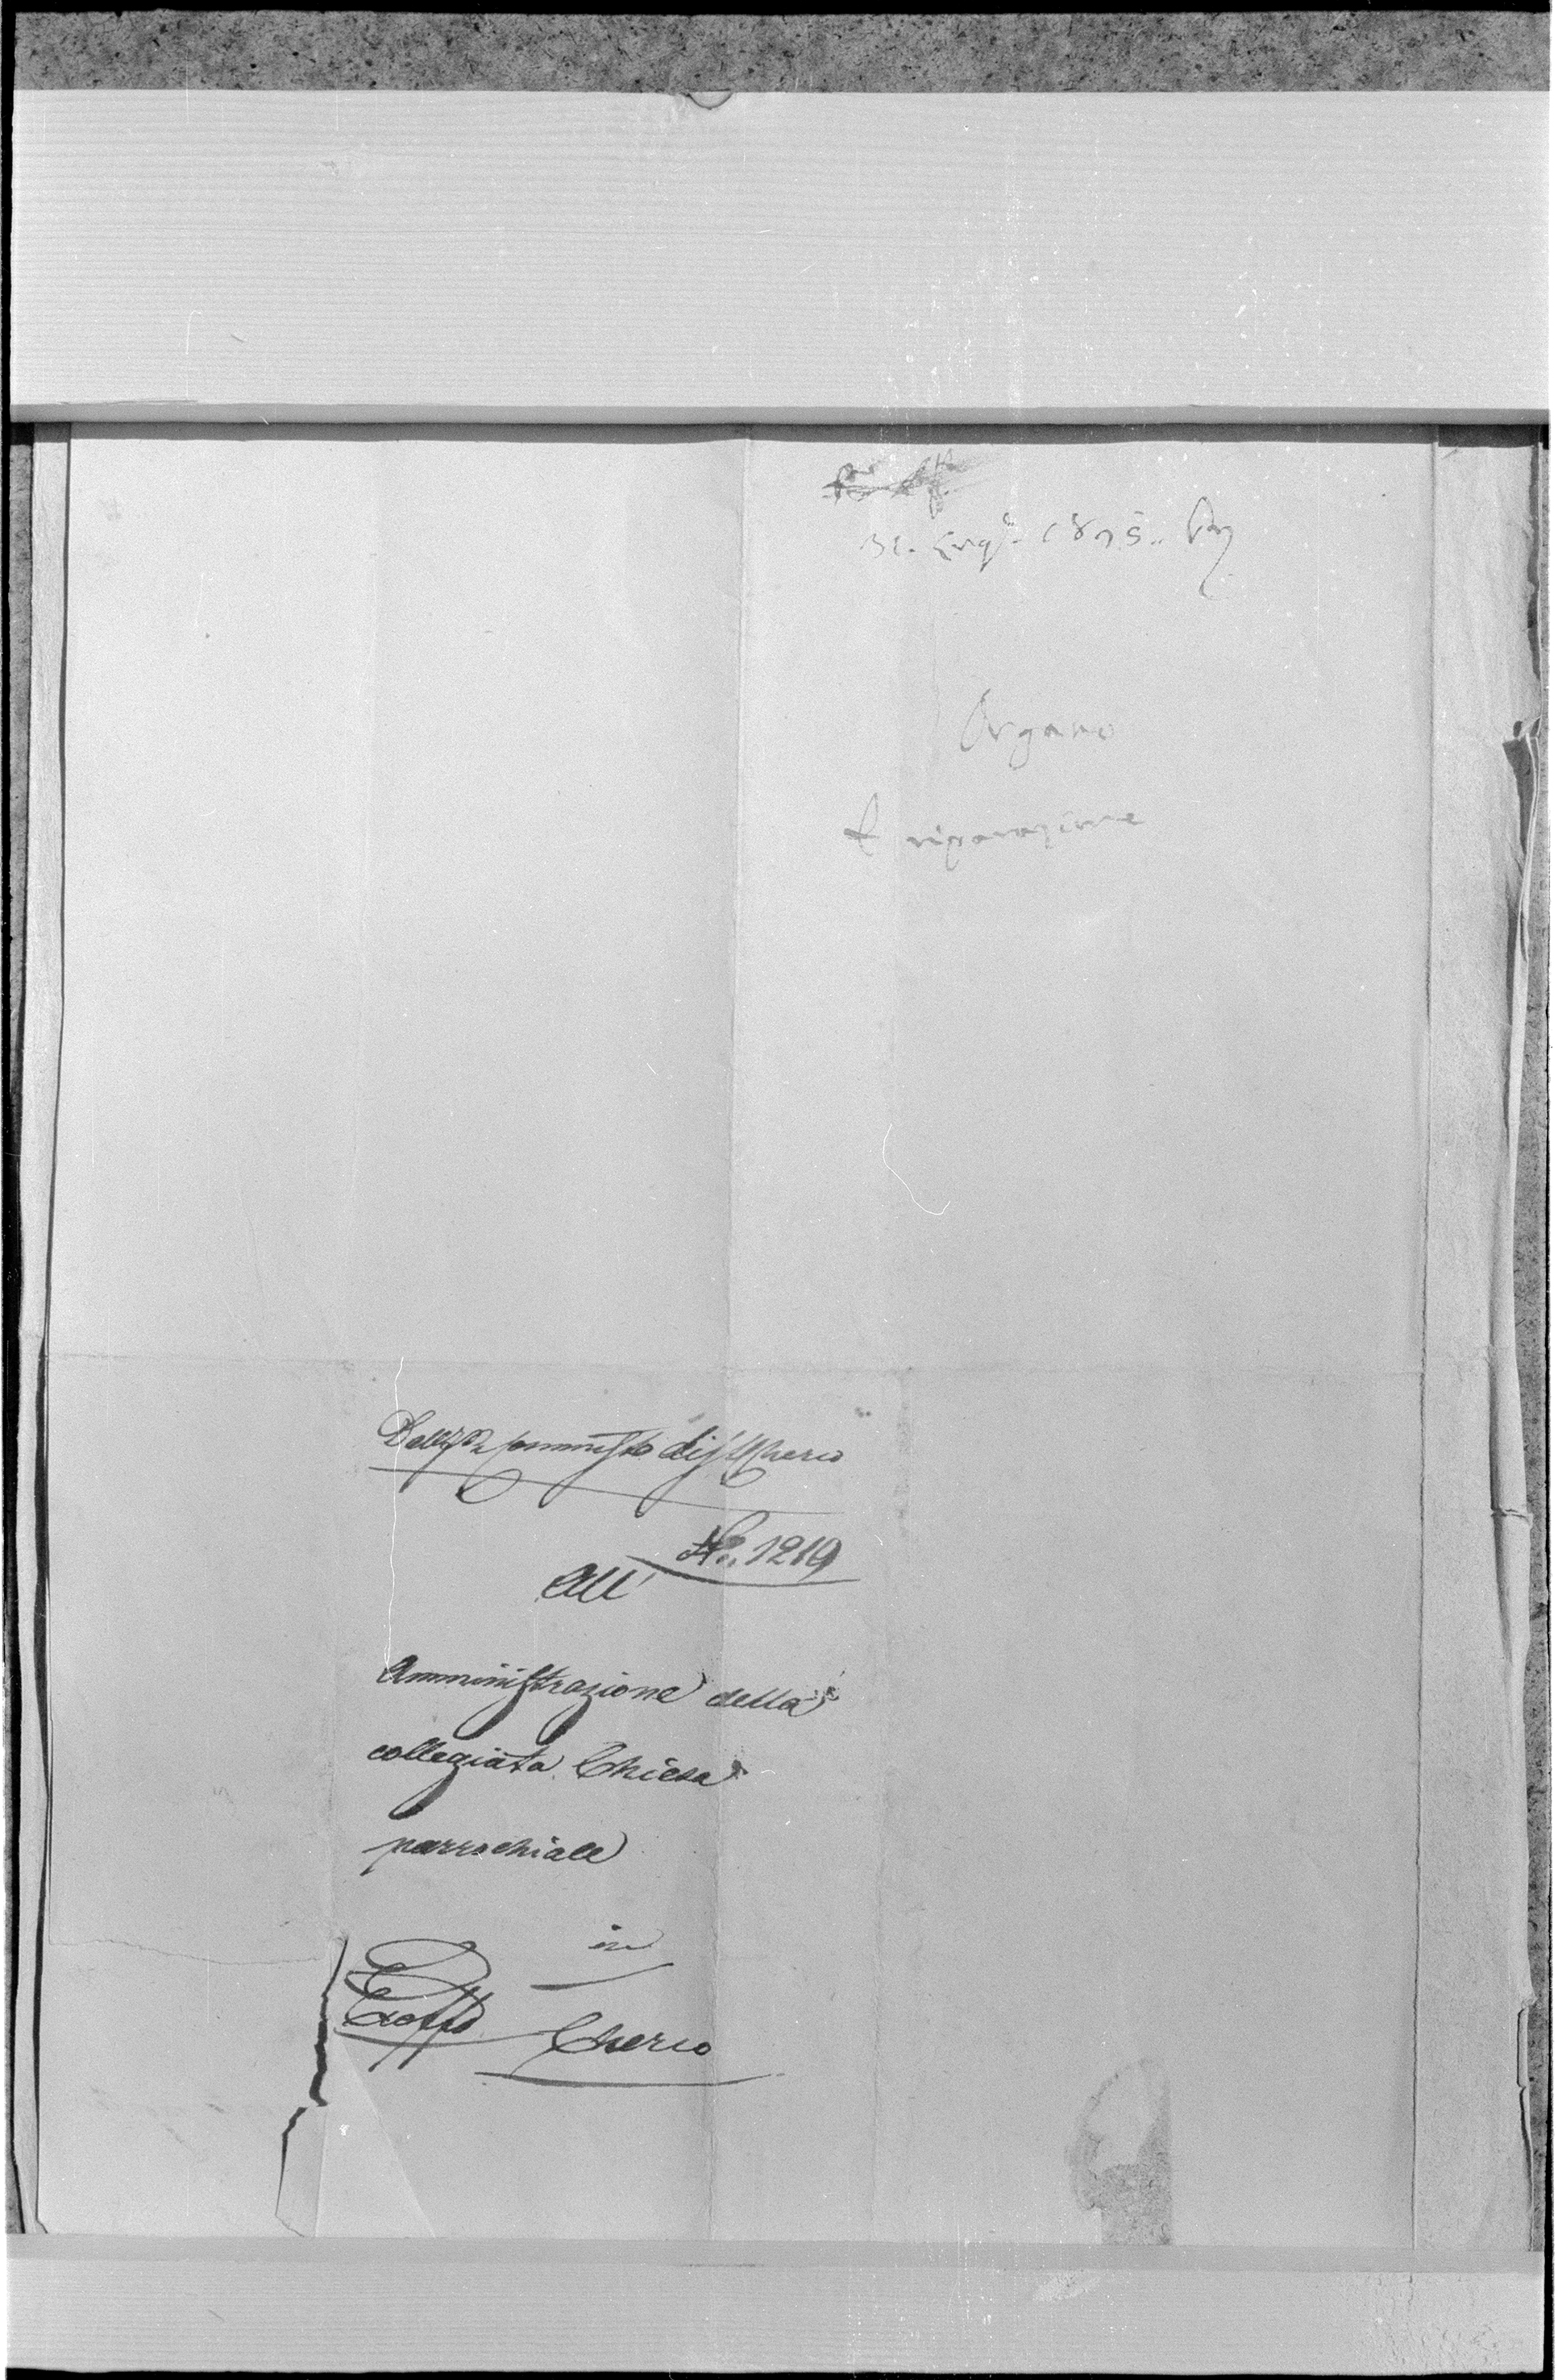 31. Lug. 1875.
Organo
riparazione
di Cherso
No. 1219
All'
Amministrazione della
collegiata Chiesa
parrochiale
in
Cherso